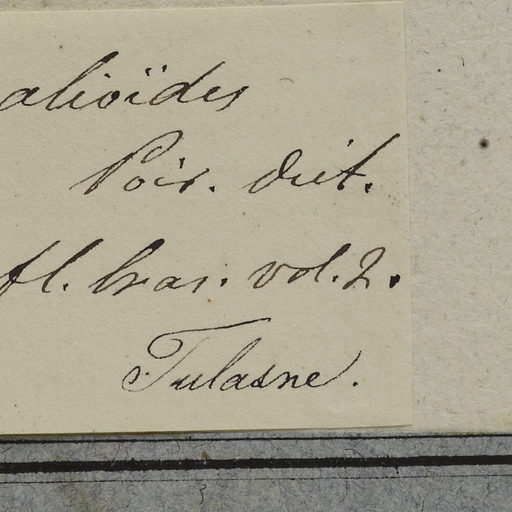 alioïdes
Poir. dict.
fl. bras. vol. 2.
Tulasne.